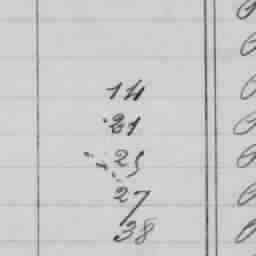 14
21
25
27
38